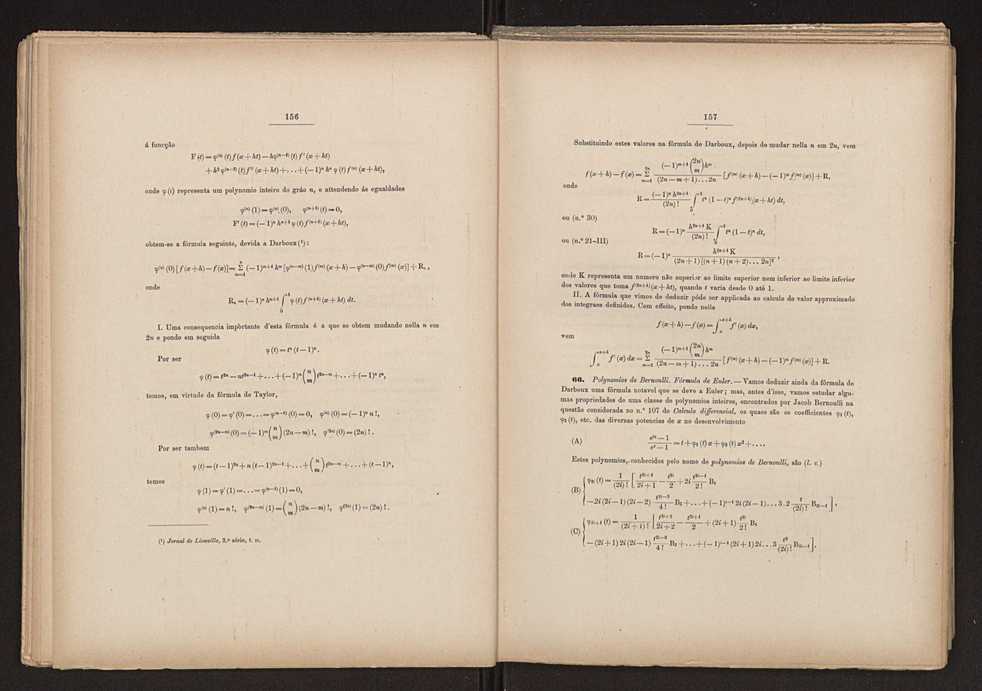 156
á funcção
F (t) = φ⁽ⁿ⁾ (t) f (x + ht) — hφ⁽ⁿ⁻¹⁾ (t) f′ (x + ht)
+ h² φ⁽ⁿ⁻²⁾ (t) f″ (x + ht) + . . . + (— 1)ⁿ hⁿ φ (t) f⁽ⁿ⁾ (x + ht),
onde φ (t) representa um polynomio inteiro do gráo n, e attendendo ás egualdades
φ⁽ⁿ⁾ (1) = φ⁽ⁿ⁾ (0), φ⁽ⁿ⁺¹⁾ (t) = 0,
F′ (t) = (— 1)ⁿ hⁿ⁺¹ φ (t) f⁽ⁿ⁺¹⁾ (x + ht),
obtem-se a fórmula seguinte, devida a Darboux (¹):
φ⁽ⁿ⁾ (0) [f (x + h) — f (x)] = Σ (— 1)ᵐ⁺¹ hᵐ [φ⁽ⁿ⁻ᵐ⁾ (1) f⁽ᵐ⁾ (x + h) — φ⁽ⁿ⁻ᵐ⁾ (0) f⁽ᵐ⁾ (x)] + Rₙ ,
onde
Rₙ = (— 1)ⁿ hⁿ⁺¹ ∫₀¹ φ (t) f⁽ⁿ⁺¹⁾ (x + ht) dt.
I. Uma consequencia importante d'esta fórmula é a que se obtem mudando nella n em
2n e pondo em seguida
φ (t) = tⁿ (t — 1)ⁿ.
Por ser
φ (t) = t²ⁿ — nt²ⁿ⁻¹ + . . . + (— 1)ᵐ (n m) t²ⁿ⁻ᵐ + . . . + (— 1)ⁿ tⁿ,
temos, em virtude da fórmula de Taylor,
φ (0) = φ′ (0) = . . . = φ⁽ⁿ⁻¹⁾ (0) = 0, φ⁽ⁿ⁾ (0) = (— 1)ⁿ n!,
φ⁽²ⁿ⁻ᵐ⁾ (0) = (— 1)ᵐ (n m) (2n — m)!, φ⁽²ⁿ⁾ (0) = (2n)! .
Por ser tambem
φ (t) = (t — 1)²ⁿ + n (t — 1)²ⁿ⁻¹ + . . . + (n m) t²ⁿ⁻ᵐ + . . . + (t — 1)ⁿ,
temos
φ (1) = φ′ (1) = . . . = φ⁽ⁿ⁻¹⁾ (1) = 0,
φ⁽ⁿ⁾ (1) = n!, φ⁽²ⁿ⁻ᵐ⁾ (1) = (n m) (2n — m)!, φ⁽²ⁿ⁾ (1) = (2n)! .
(¹) Jornal de Liouville, 3.ª série, t. II.
157
Substituindo estes valores na fórmula de Darboux, depois de mudar nella n em 2n, vem
f (x + h) — f (x) = Σ (— 1)ᵐ⁺¹ (2n m) hᵐ / (2n — m + 1) . . . 2n [f⁽ᵐ⁾ (x + h) — (— 1)ᵐ f⁽ᵐ⁾ (x)] + R,
onde
R = (— 1)ⁿ h²ⁿ⁺¹ / (2n)! ∫₀¹ tⁿ (1 — t)ⁿ f⁽²ⁿ⁺¹⁾ (x + ht) dt,
ou (n.º 30)
R = (— 1)ⁿ h²ⁿ⁺¹ K / (2n)! ∫₀¹ tⁿ (1 — t)ⁿ dt,
ou (n.º 21–III)
R = (— 1)ⁿ h²ⁿ⁺¹ K / (2n + 1) [(n + 1) (n + 2) . . . 2n]² ,
onde K representa um numero não superior ao limite superior nem inferior ao limite inferior
dos valores que toma f⁽²ⁿ⁺¹⁾ (x + ht), quando t varia desde 0 até 1.
II. A fórmula que vimos de deduzir póde ser applicada ao calculo do valor approximado
dos integraes definidos. Com effeito, pondo nella
f (x + h) — f (x) = ∫ₓˣ⁺ʰ f′ (x) dx,
vem
∫ₓˣ⁺ʰ f′ (x) dx = Σ (— 1)ᵐ⁺¹ (2n m) hᵐ / (2n — m + 1) . . . 2n [f⁽ᵐ⁾ (x + h) — (— 1)ᵐ f⁽ᵐ⁾ (x)] + R.
66. Polynomios de Bernoulli. Fórmula de Euler. — Vamos deduzir ainda da fórmula de
Darboux uma fórmula notavel que se deve a Euler; mas, antes d'isso, vamos estudar algu-
mas propriedades de uma classe de polynomios inteiros, encontrados por Jacob Bernoulli na
questão considerada no n.º 107 do Calculo differencial, os quaes são os coefficientes φ₁ (t),
φ₂ (t), etc. das diversas potencias de x no desenvolvimento
(A) eᵗˣ — 1 / eˣ — 1 = t + φ₁ (t) x + φ₂ (t) x² + . . . .
Estes polynomios, conhecidos pelo nome de polynomios de Bernoulli, são (l. c.)
(B) φ₂ᵢ (t) = 1 / (2i)! [t²ⁱ⁺¹ / 2i + 1 — t²ⁱ / 2 + 2i t²ⁱ⁻¹ / 2! B₁
— 2i (2i — 1) (2i — 2) t²ⁱ⁻³ / 4! B₂ + . . . + (— 1)ⁱ⁻¹ 2i (2i — 1) . . . 3 . 2 t / (2i)! B₂ᵢ₋₁] ,
(C) φ₂ᵢ₊₁ (t) = 1 / (2i + 1)! [t²ⁱ⁺² / 2i + 2 — t²ⁱ⁺¹ / 2 + (2i + 1) t²ⁱ / 2! B₁
— (2i + 1) 2i (2i — 1) t²ⁱ⁻² / 4! B₂ + . . . + (— 1)ⁱ⁻¹ (2i + 1) 2i . . . 3 t² / (2i)! B₂ᵢ₋₁] .